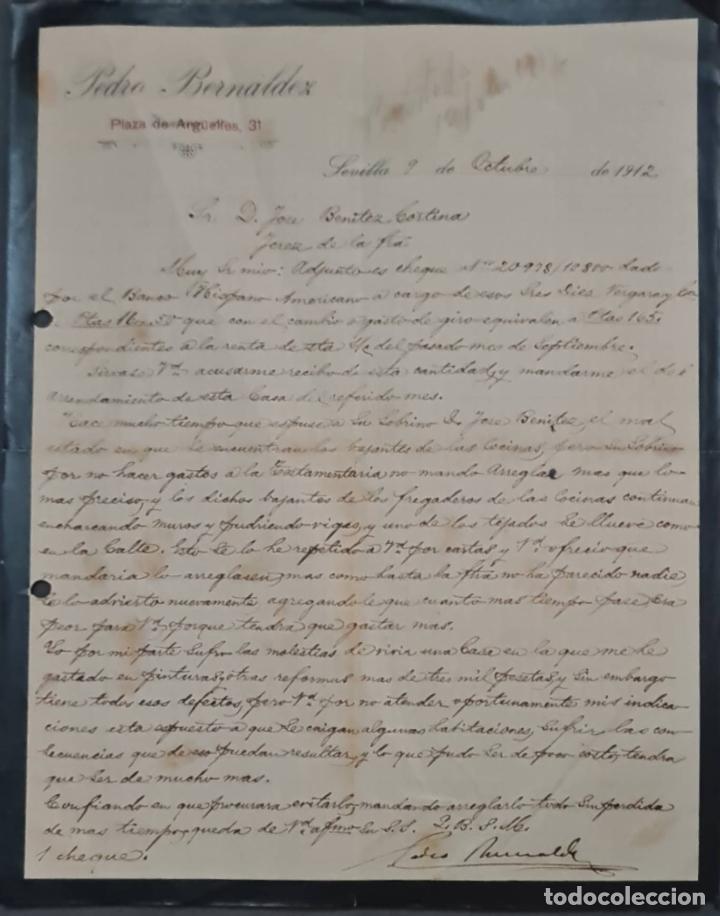 Pedro Bernaldez
Plaza de Argüelles, 31
Sevilla 9 de Octubre de 1912
Sr. D. Jose Benitez Cortina
Jerez de la fra
Muy Sr mio: Adjunto es cheque Nº 20978/10800 dado
por el Banco Hispano Americano a cargo de esos Sres Diez Vergara y
Ptas que con el cambio o gasto de giro equivalen a Ptas 165,
correspondientes a la renta de sta del pasado mes de Septiembre.
Sirvase Vd. acusarme recibo de esta cantidad, y mandarme el de
Arrendamiento de esta Casa del referido mes.
Hace mucho tiempo que espuse a Su Sobrino D. Jose Benitez, el mal
estado en que se encuentran los bajantes de las Cocinas, pero Su Sobrino
por no hacer gastos a la Testamentaria no mando Arreglar mas que lo
mas preciso, y los dichos bajantes de los fregaderos de las Cocinas continuan
encharcando muros y pudriendo vigas, y uno de los tejados Se llueve como
en la Calle. Esto Se lo he repetido a Vd. por cartas y Vd. ofrecio que
mandaria lo arreglasen, mas como hasta la fha no ha parecido nadie
Se lo advierto nuevamente agregandole que cuanto mas tiempo pase, Sera
peor para Vd. porque tendra que gastar mas.
Yo por mi parte Sufro las molestias de vivir una Casa en la que me he
gastado en pinturas y otras reformas mas de tres mil pesetas, y Sin embargo
tiene todos esos defectos, pero Vd. por no atender oportunamente mis indica-
ciones esta espuesto a que Se caigan algunas habitaciones, Sufrir las con-
secuencias que de eso puedan resultar, y lo que pudo Ser de poco costo, tendra
que Ser de mucho mas.
Confiando en que procurara evitarlo, mandando arreglarlo todo Sin perdida
de mas tiempo, queda de Vd. afmo Su S.S. Q. B. S. M.
1 cheque. Pedro Bernaldez
todocoleccion.net